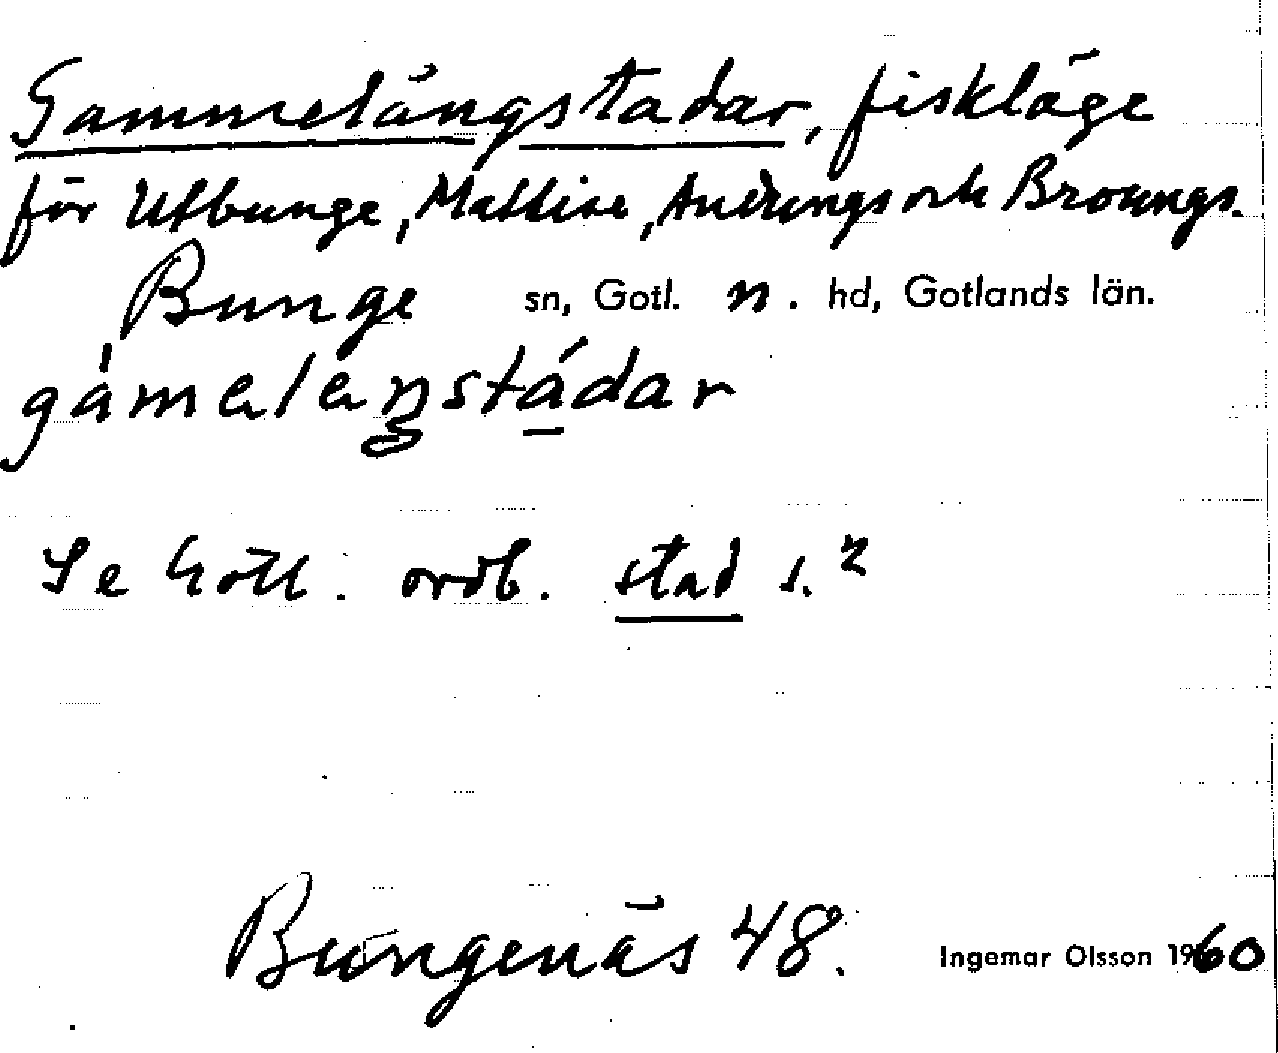 Gammelängstadar, fiskläge
för Utbunge, Mattise, Audungs och Broungs.
Bunge sn, Gotl. n. hd, Gotlands län.
gàmalaŋstádar
Se Gotl. ordb. stad s. 2
Bungenäs 48. Ingemar Olsson 1960